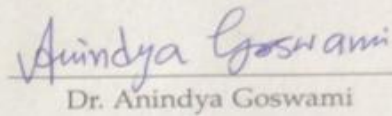 Anindya Goswami
Dr. Anindya Goswami